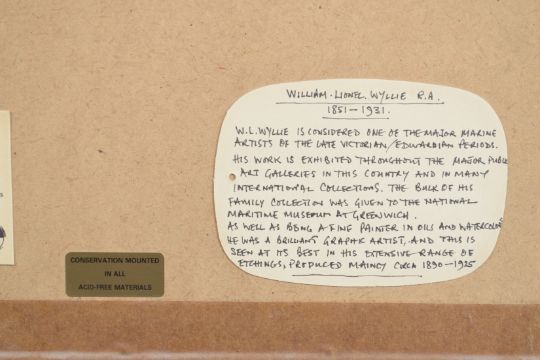 WILLIAM. LIONEL. WYLLIE R.A.
1851-1931.
W.L. WYLLIE IS CONSIDERED ONE OF THE MAJOR MARINE
ARTISTS OF THE LATE VICTORIAN/EDWARDIAN PERIODS.
HIS WORK IS EXHIBITED THROUGHOUT THE MAJOR PUBLIC
ART GALLERIES IN THIS COUNTRY AND IN MANY
INTERNATIONAL COLLECTIONS. THE BULK OF HIS
FAMILY COLLECTION WAS GIVEN TO THE NATIONAL
MARITIME MUSEUM AT GREENWICH.
AS WELL AS BEING A FINE PAINTER IN OILS AND WATERCOLORS
HE WAS A BRILLIANT GRAPHIC ARTIST, AND THIS IS
SEEN AT ITS BEST IN HIS EXTENSIVE RANGE OF
ETCHINGS, PRODUCED MAINLY CIRCA 1890-1925
CONSERVATION MOUNTED
IN ALL
ACID-FREE MATERIALS